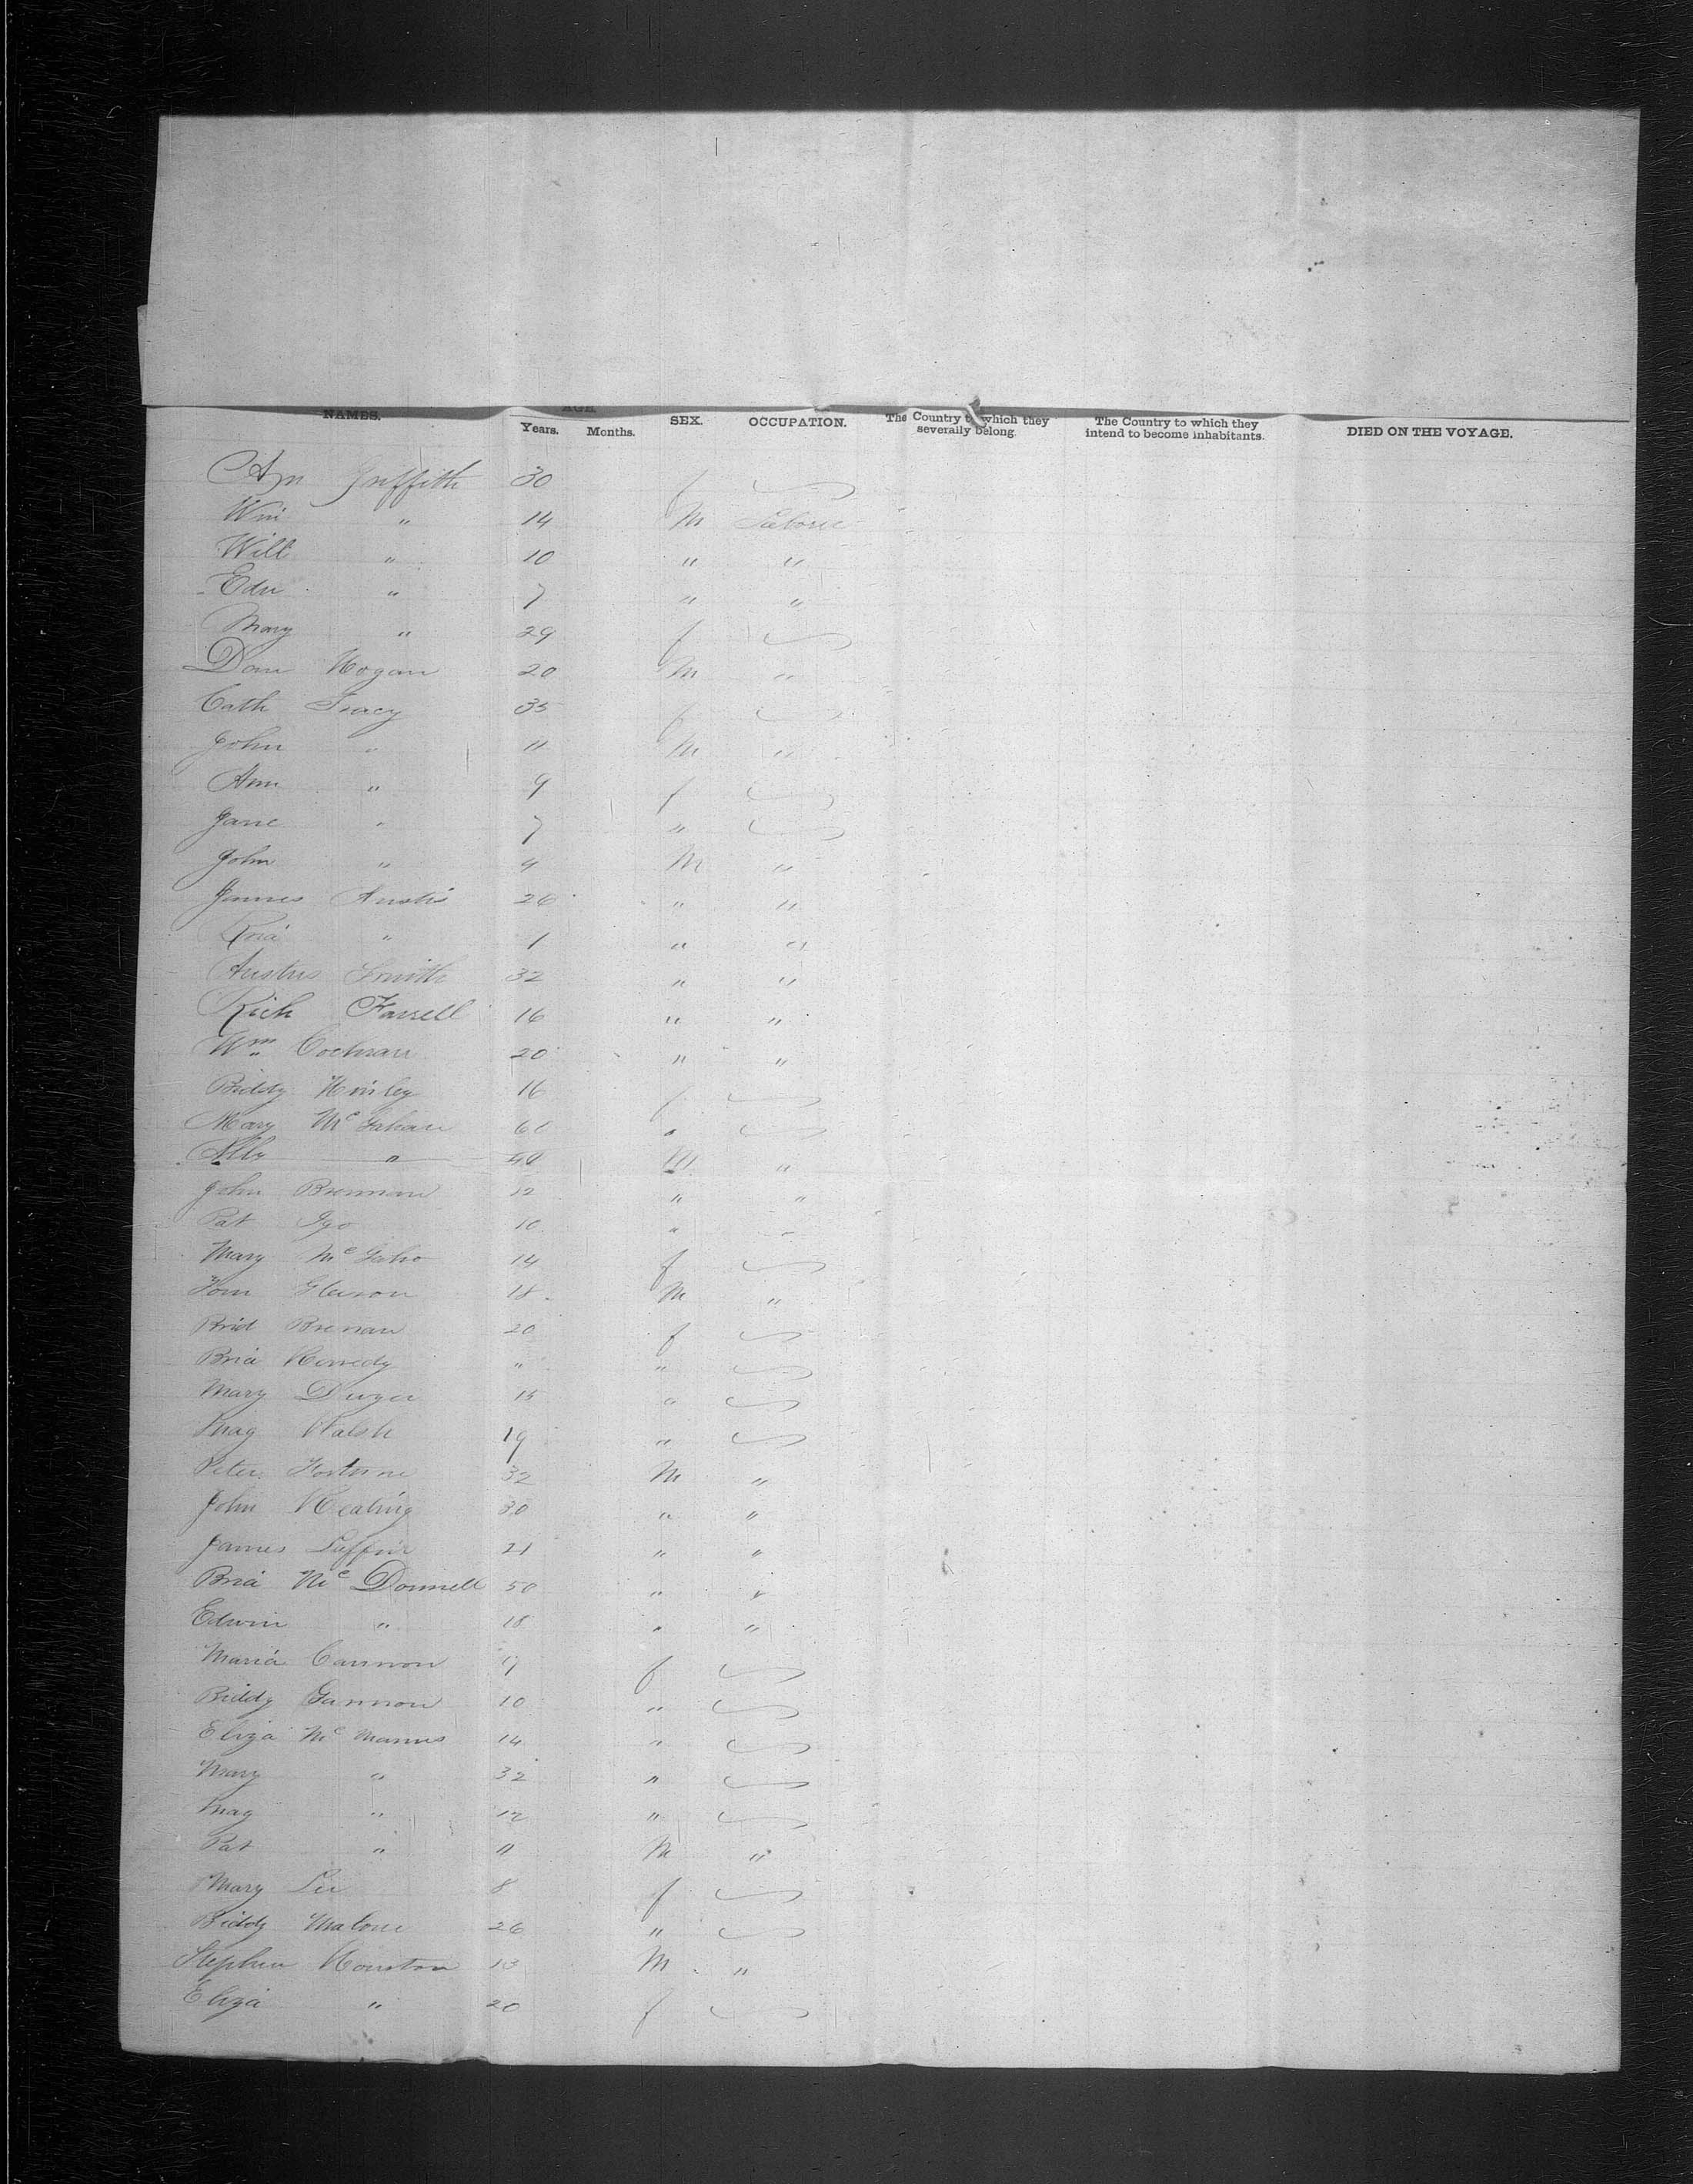 NAMES. AGE. SEX. OCCUPATION. The Country to which they severally belong. The Country to which they intend to become inhabitants. DIED ON THE VOYAGE.
Years. Months.
Ann Griffith 30 f
Wm " 14 M Laborer
Will " 10 " "
Edw " 7 " "
Mary " 29 f
Dan Hogan 20 M "
Cath Tracy 35 f
John " 11 M "
Ann " 9 f
Jane " 7 "
John " 9 M "
James Austis 26 " "
" 1 " "
Smith 32 " "
Rich Farrell 16 " "
Wm Cochran 20 " "
Biddy 16 f
Mary McGahan 60 "
" M "
John Brennan 12 " "
Pat Igo 10 " "
Mary McGaho 14 f
Tom Gleason 18 M "
Brid Brenan 20 f
Bria Kennedy " "
Mary Dwyer 15 "
Mag Walsh 19 "
Peter Fortune 32 M "
John Keating 30 " "
James Laffin 21 " "
Bria McDonnell 50 " "
Edwin " 18 " "
Maria Cannon 9 f
Biddy Gannon 10 "
Eliza McManus 14 "
Mary " 32 "
Mag " 12 "
Pat " 11 M "
Mary Lee 8 f
Biddy Malone 26 "
Stephen Houston 13 M "
Eliza " 20 f